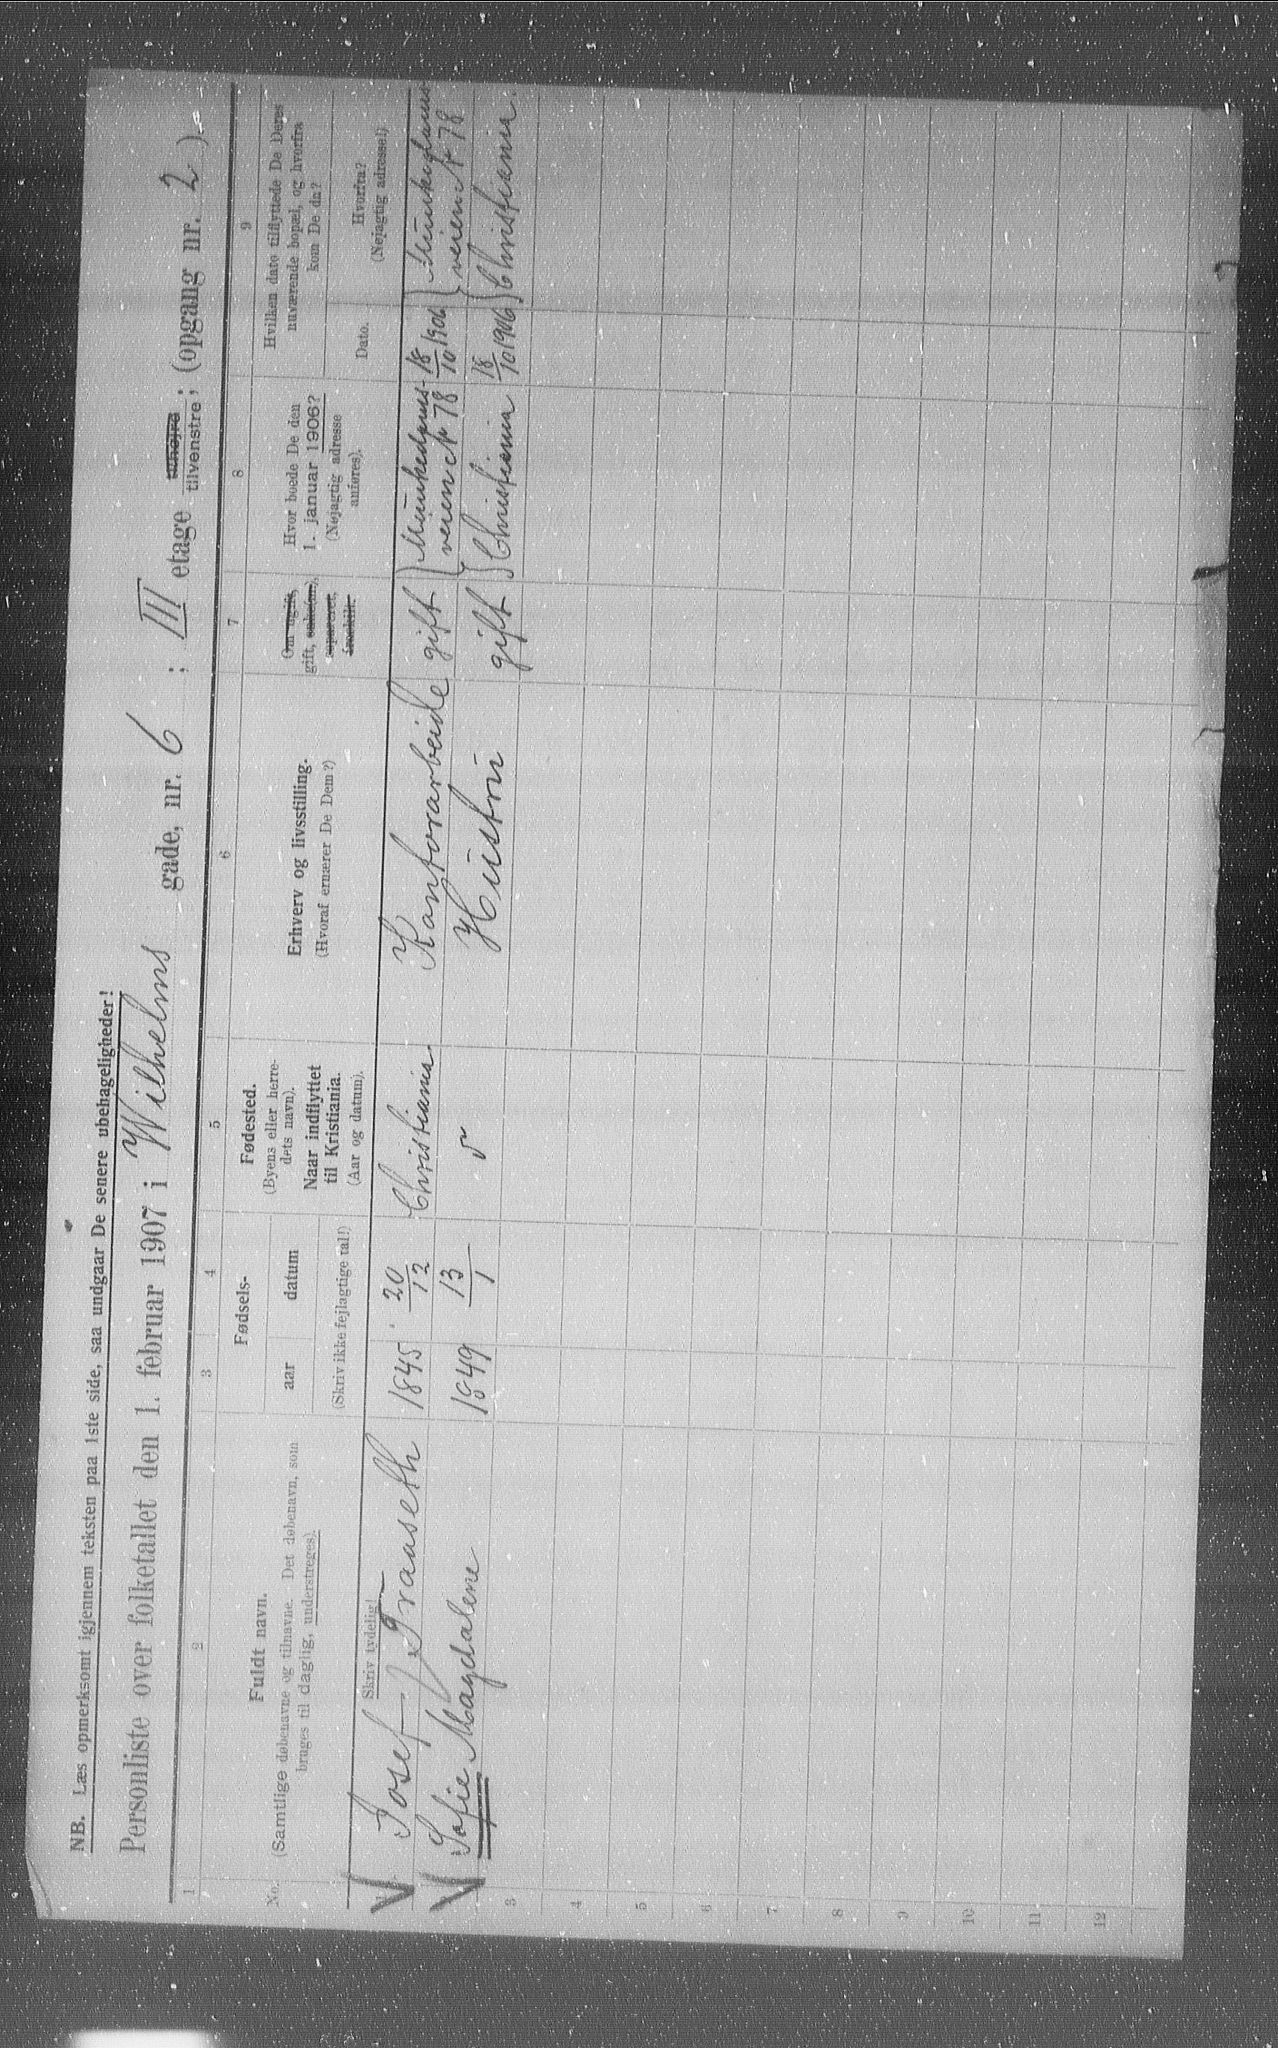 NB. Læs opmerksomt igjennem teksten paa 1ste side, saa undgaar De senere ubehageligheder!
Personliste over folketallet den 1. februar 1907 i Wilhelms gade, nr. 6 ; III etage tilhøjre tilvenstre ; (opgang nr. 2 ).
1 2 3 4 5 6 7 8 9
No.
Fuldt navn.
(Samtlige døbenavne og tilnavne. Det døbenavn, som
bruges til daglig, understreges).
Skriv tydelig!
Fødsels-
aar datum
(Skriv ikke fejlagtige tal!)
Fødested.
(Byens eller herre-
dets navn).
Naar indflyttet
til Kristiania.
(Aar og datum).
Erhverv og livsstilling.
(Hvoraf ernærer De Dem?)
Om ugift,
gift, enke(m.),
separeret,
fraskilt.
Hvor boede De den
1. januar 1906?
(Nøjagtig adresse
anføres).
Hvilken dato tilflyttede De Deres
nuværende bopæl, og hvorfra
kom De da?
Dato.
Hvorfra?
(Nøjagtig adresse!)
Josef Traaseth 1845 20/12 Christiania Kontorarbeide gift Munkedams- veien № 78 18/10 1906 Munkedams veien № 78
Sofie Magdalene 1849 13/1 Hustru gift Christiania 18/10 1906 Christiania.
3
4
5
6
7
8
9
10
11
12